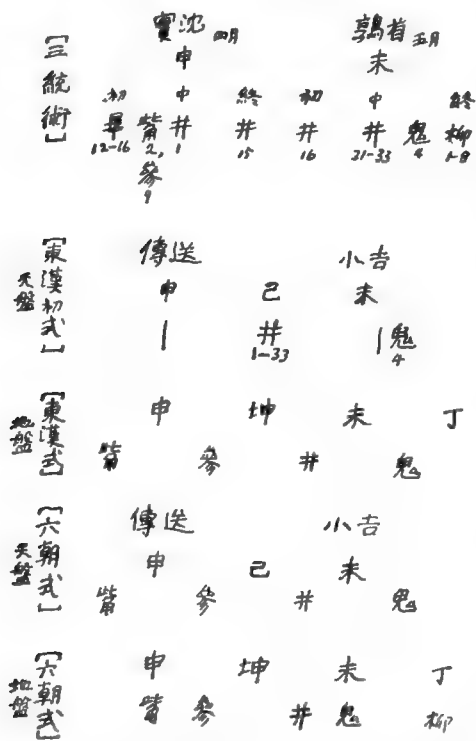 [三統術]
實沈 四月 鶉首 五月
申 未
初 中 終 初 中 終
畢 觜 井 井 井 井 鬼 柳
12-16 2, 1 15 16 21-33 4 1-8
參
9
[東漢初式] 天盤
傳送 小吉
申 己 未
| 井 | 鬼
1-33 4
[東漢式] 地盤
申 坤 未 丁
觜 參 井 鬼
[六朝式] 天盤
傳送 小吉
申 己 未
觜 參 井 鬼
[六朝式] 地盤
申 坤 未 丁
觜 參 井 鬼 柳